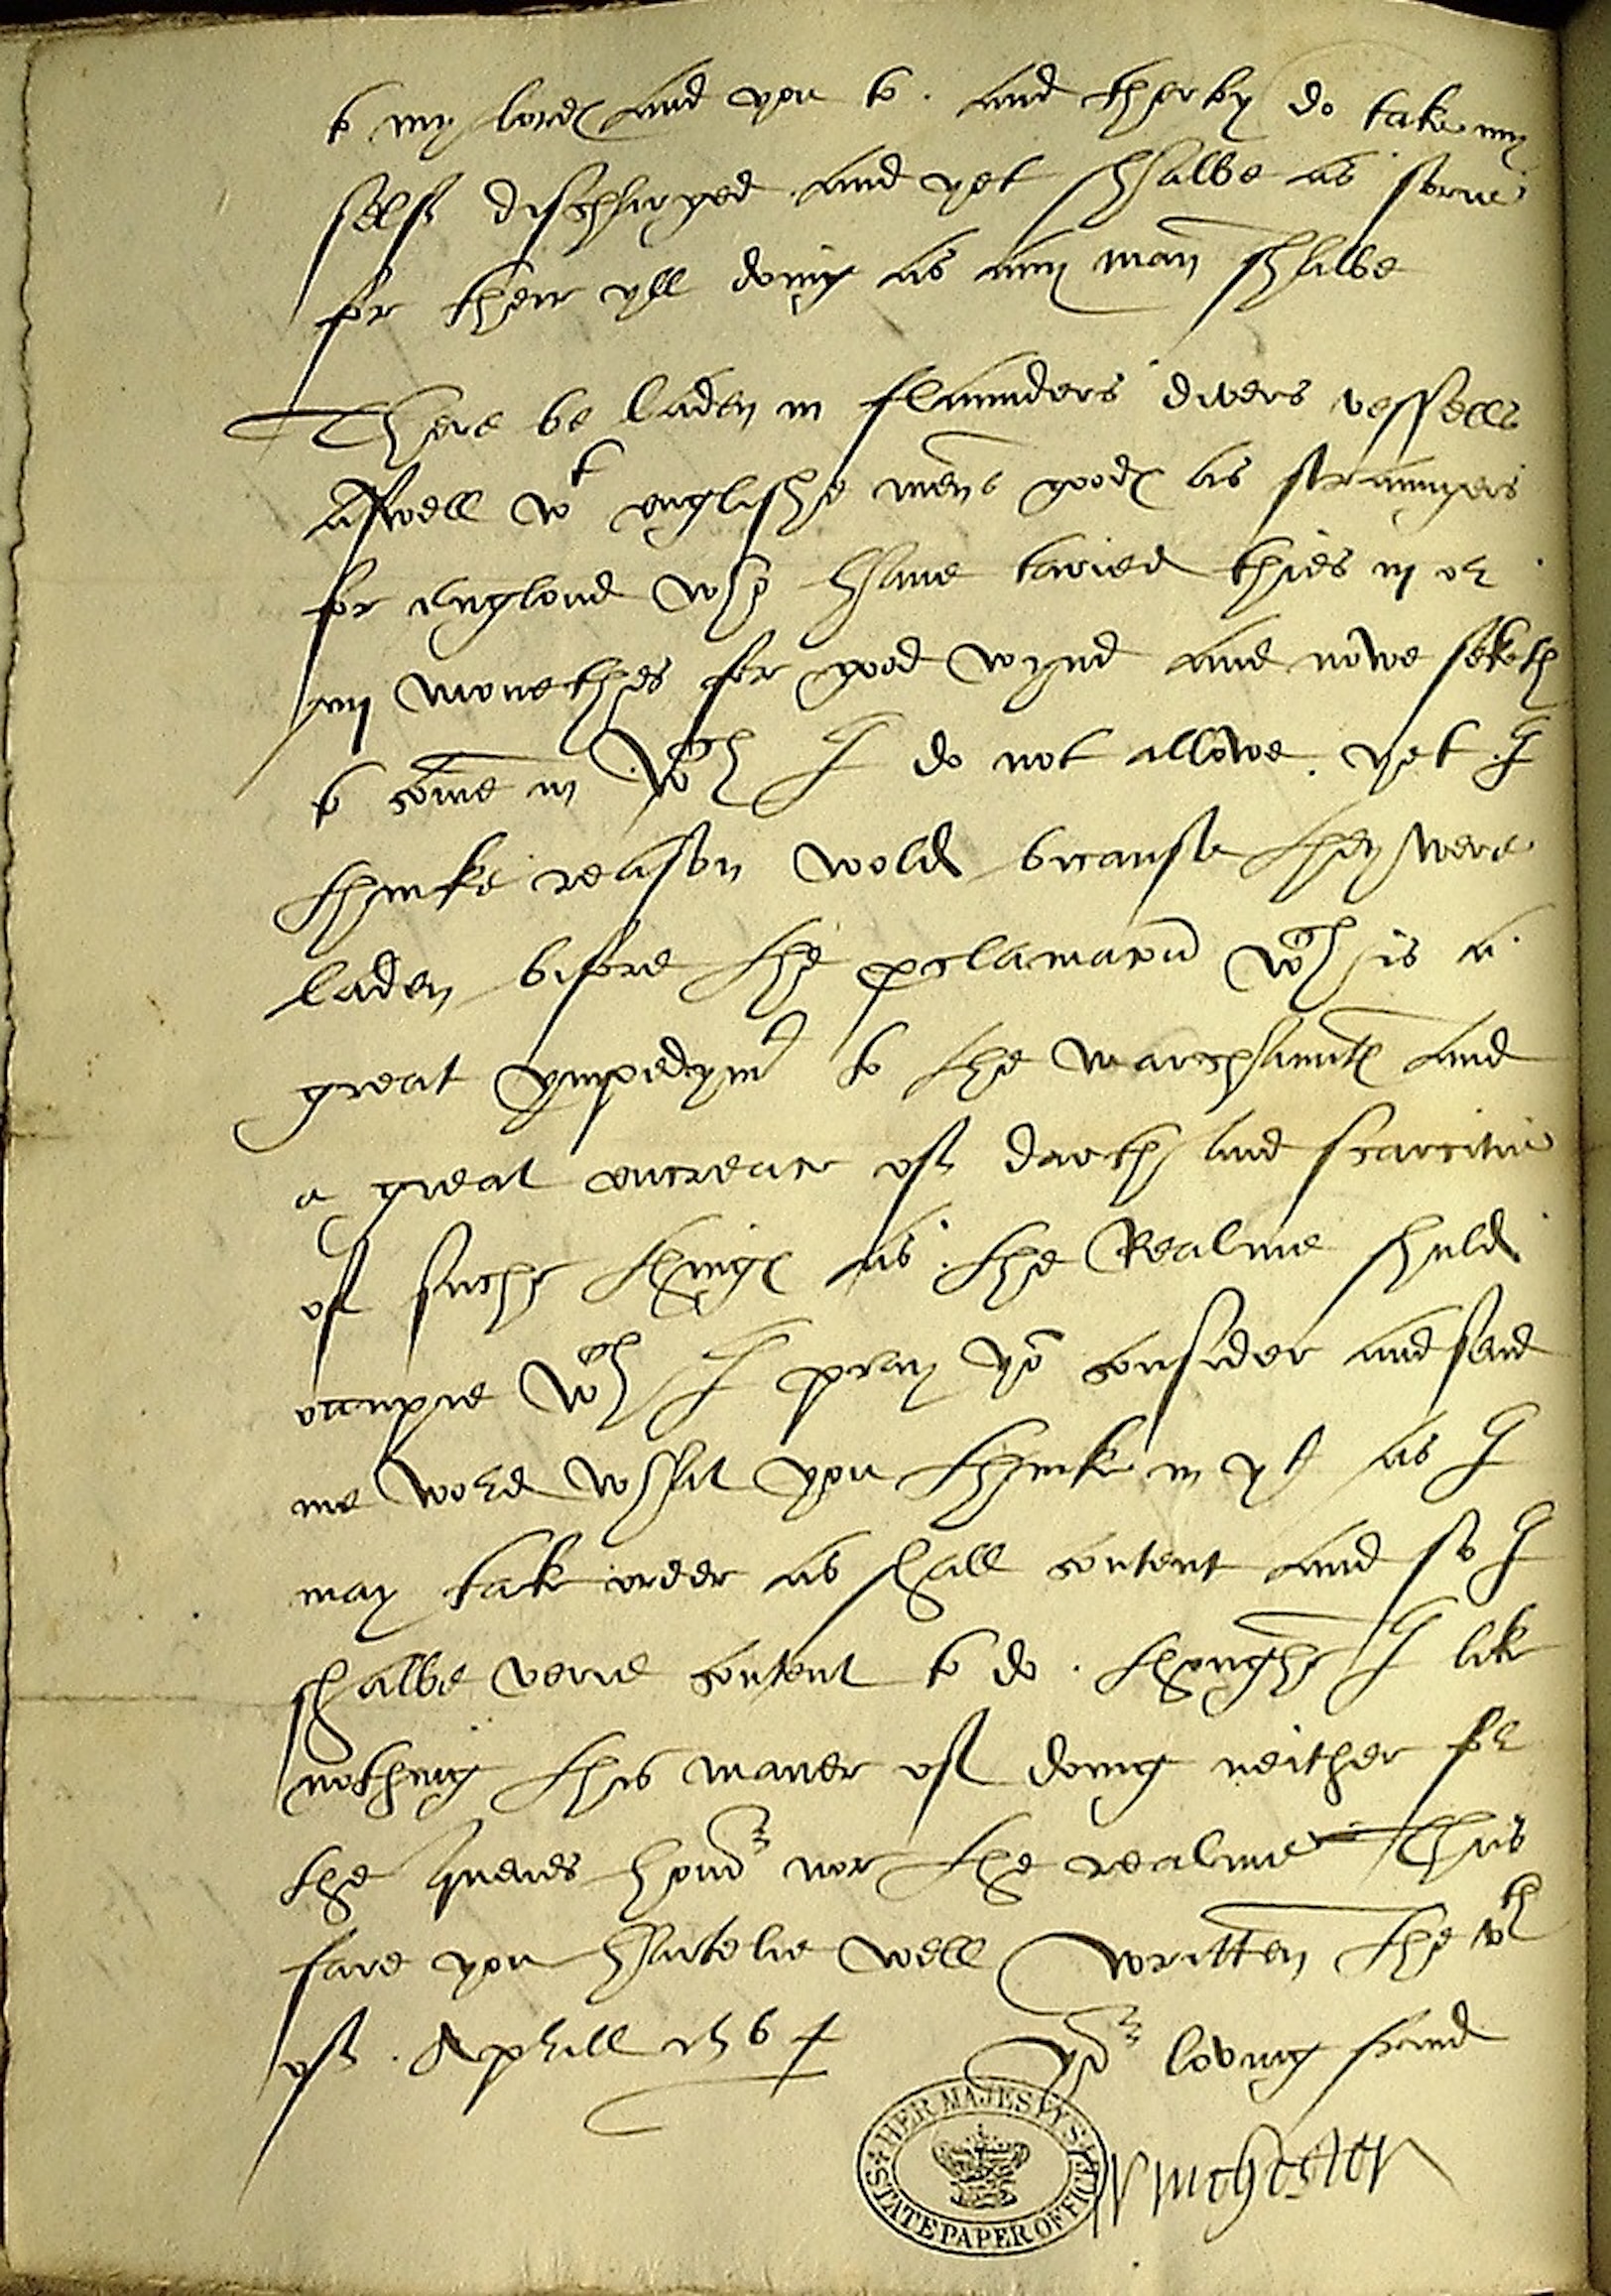 to my lordes and you to . and therby do take my
self discharged and yet shalbe as sorie
for their yll doing as any man shalbe
There be laden in flaunders divers vessells
Aswell wt englishe mens goodes as straungers
for england whch have taried thies iij or
iiij monethes for good wynd and nowe seketh
to come in wch I do not allowe . yet I
thinke reason wold bicause they were
laden bifore the pclamacon wch is a
great ympedymt to the marchauntes and
a great encreace of darth and scarcitie
of suche thinges as the Realme shuld
occupie wch I pray yo consider and send
me word what you thinke in yt as I
may take order as shall content and so I
shalbe verie content to do . thoughe I like
nothing this maner of doing neither for
the Quenes honor nor the realme Thus
fare you hartelie well written the vth
of . Aprill 1564
yor loving frend
Winchester
HER MAJESTY'S
STATE PAPER OFFICE